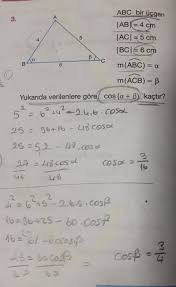 3.
ABC bir üçgen
|AB| = 4 cm
|AC| = 5 cm
|BC| = 6 cm
m(ABC) = α
m(ACB) = β
A
4
5
B
α
β
C
6
Yukarıda verilenlere göre, cos(α + β) kaçtır?
5² = 6² + 4² - 2.4.6 . cosα
25 = 36+16 - 48cosα
25 = 52 - 48.cosα
27 = 48cosα
48 48
cosα = 9/16
4² = 6² + 5² - 2.6.5 cosβ
16 = 36+25 - 60.cosβ
16 = 61 - 60cosβ
cosβ = 3/4